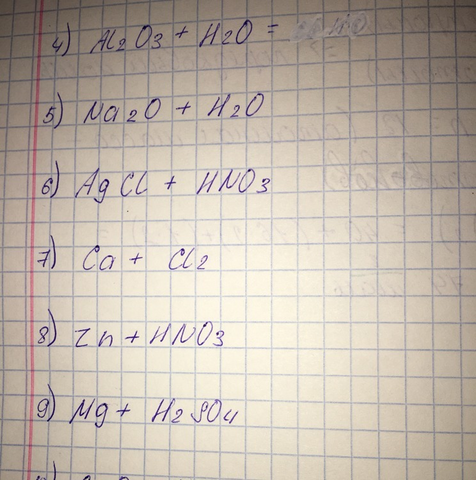 4) Al2O3 + H2O =
5) Na2O + H2O
6) AgCl + HNO3
7) Ca + Cl2
8) Zn + HNO3
9) Mg + H2SO4